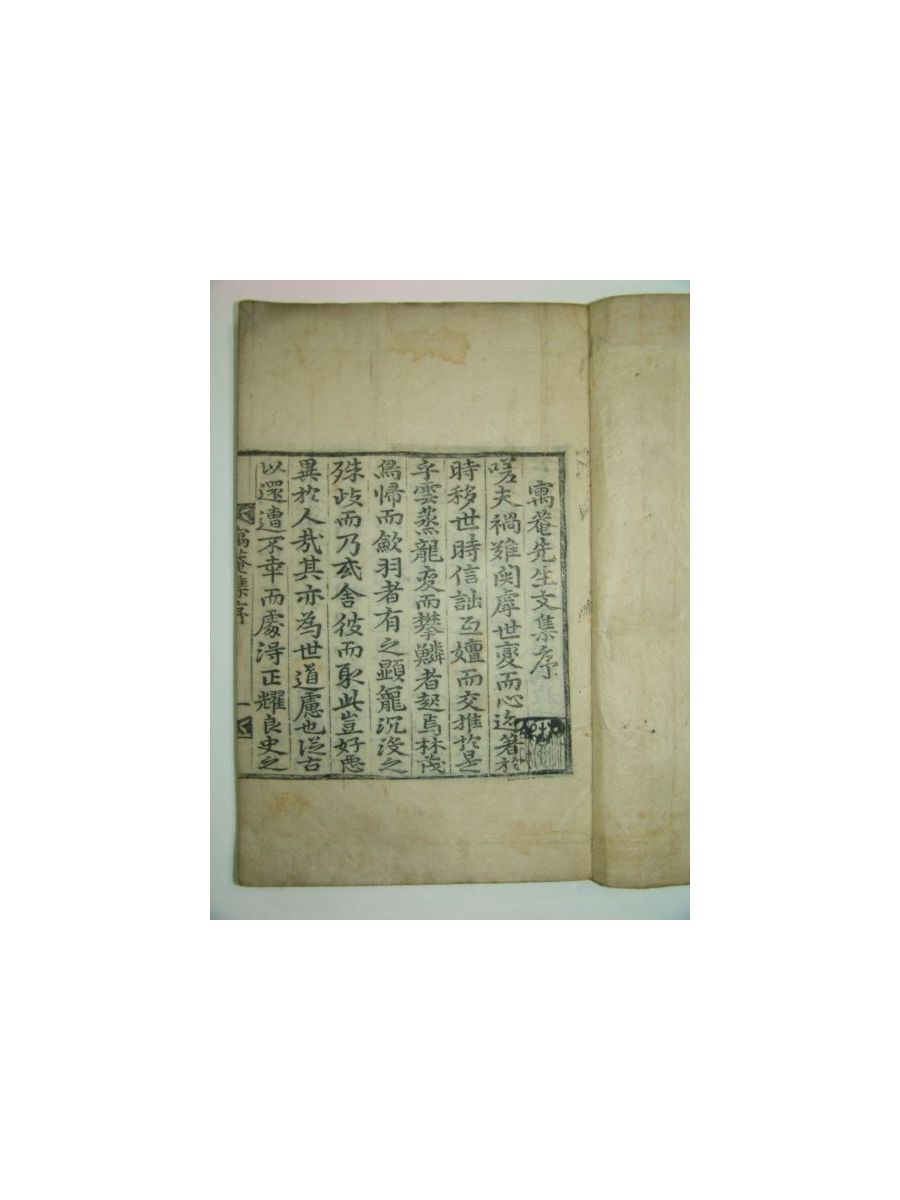 寓菴先生文集序
嗟夫禍難関虖世變而心迹著於
時移世時信詘互嬗而交推於是
乎雲蒸龍変而攀鱗者起焉林茂
鳥帰而歛羽者有之顕寵沉沒之
殊歧而乃或舎彼而取此豈好惡
異於人㢤其亦為世道慮也従古
以還遭不幸而處得正耀良史之
寓菴集序
一